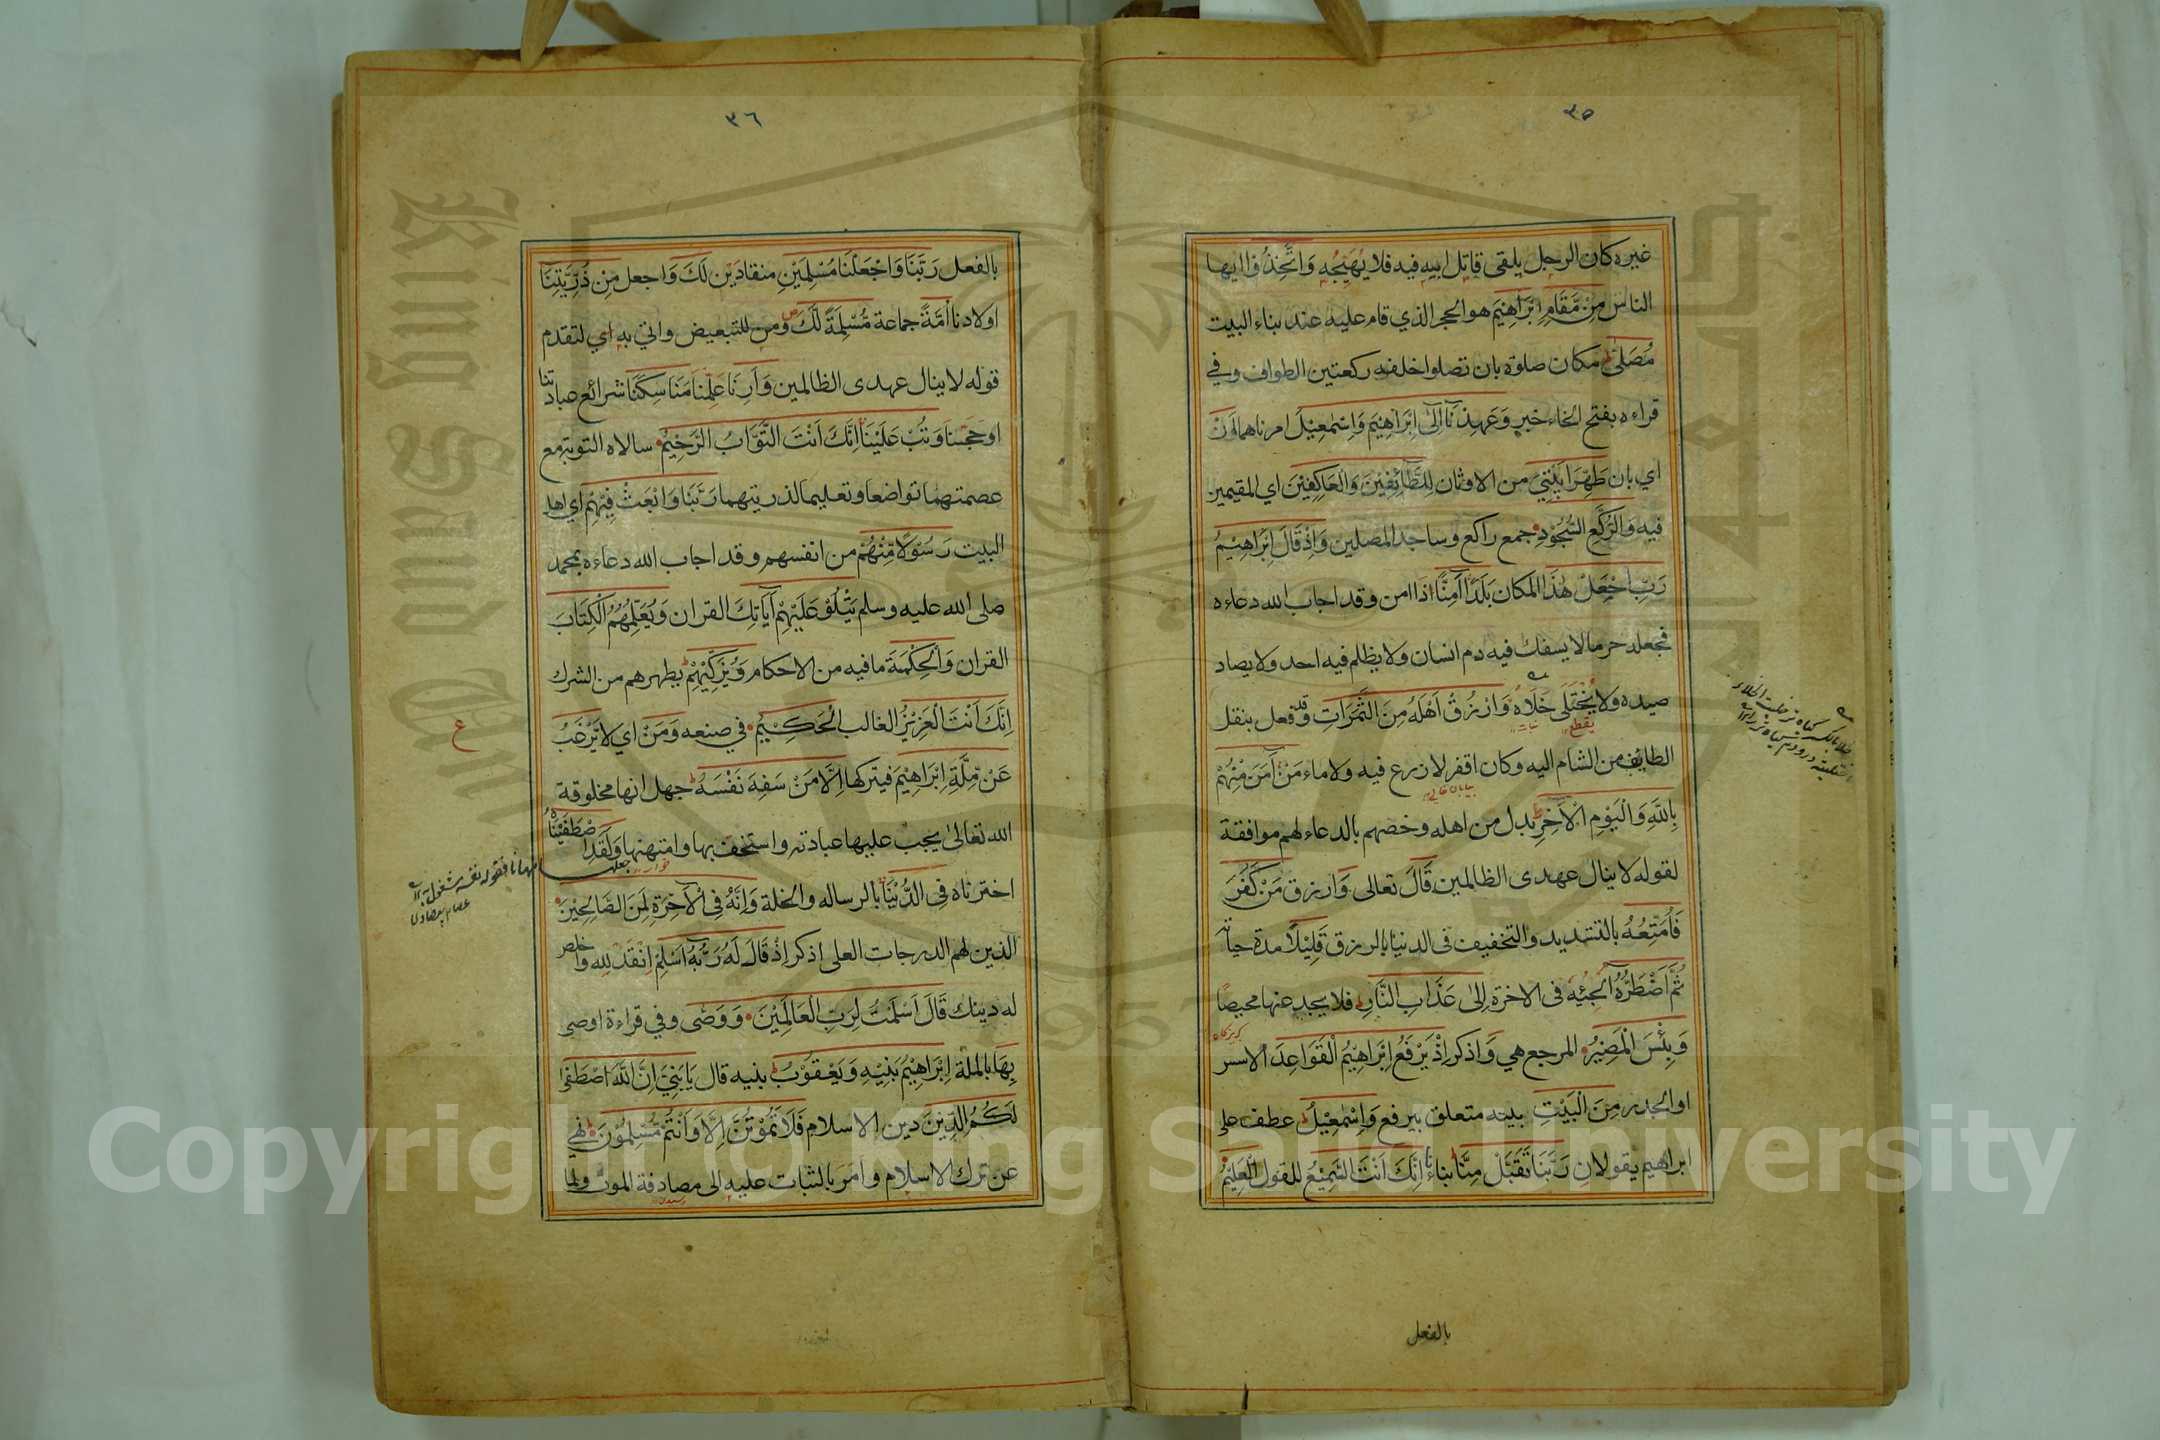 ٣٥
غيره كان الرجل يلقى قاتل ابيه فيه فلا يُهَيِّجُه وَاتَّخِذُوْا ايها
الناس مِنْ مَّقَامِ اِبْرَاهِيْمَ هو الحجر الذي قام عليه عند بناء البيت
مُصَلًّى مكان صلوة بان تصلوا خلفه ركعتين الطواف وفي
قراءه بفتح الخاء خبر وَعَهِدْنَا اِلٰى اِبْرَاهِيْمَ وَاِسْمٰعِيْلَ امرناهما اَنْ
اي بان طَهِّرَا بَيْتِيَ من الاوثان لِلطَّائِفِيْنَ وَالْعَاكِفِيْنَ اي المقيمين
فيه وَالرُّكَّعِ السُّجُوْدِ جمع راكع وساجد المصلين وَاِذْ قَالَ اِبْرَاهِيْمُ
رَبِّ اجْعَلْ هٰذَا المكان بَلَدًا اٰمِنًا ذا امن وقد اجاب الله دعاءه
فجعله حرما لا يسفك فيه دم انسان ولا يظلم فيه احد ولا يصاد
صيده ولا يُخْتَلَى خَلَاهُ وَارْزُقْ اَهْلَهُ مِنَ الثَّمَرَاتِ وقد فعل بنقل
يقطع نبات
الطايف من الشام اليه وكان اقفر لا زرع فيه ولا ماء مَنْ اٰمَنَ مِنْهُمْ
بِاللّٰهِ وَالْيَوْمِ الْاٰخِرِ بدل من اهله وخصهم بالدعاء لهم موافقة
لقوله لا ينال عهدى الظالمين قَالَ تعالى وَ ارزق مَنْ كَفَرَ
فَاُمَتِّعُهُ بالتشديد والتخفيف فى الدنيا بالرزق قَلِيْلًا مدة حياته
ثُمَّ اَضْطَرُّهُ اُلجئه فى الاخرة اِلٰى عَذَابِ النَّارِ فلا يجد عنها محيصًا
وَبِئْسَ الْمَصِيْرُ المرجع هي وَ اذكر اِذْ يَرْفَعُ اِبْرَاهِيْمُ الْقَوَاعِدَ الاسس
او الجدر مِنَ الْبَيْتِ بينه متعلق بيرفع وَاِسْمٰعِيْلُ عطف على
ابراهيم يقولان رَبَّنَا تَقَبَّلْ مِنَّا بناءنا اِنَّكَ اَنْتَ السَّمِيْعُ للقول الْعَلِيْمُ
بالفعل
٣٦
بالفعل رَبَّنَا وَاجْعَلْنَا مُسْلِمَيْنِ منقادين لَكَ وَ اجعل مِنْ ذُرِّيَّتِنَا
اولادنا اُمَّةً جماعة مُّسْلِمَةً لَّكَ ومن للتبعيض واتي به اي لتقدم
قوله لا ينال عهدى الظالمين وَاَرِنَا عَلِّمنا مَنَاسِكَنَا شرائع عبادتنا
او حجّنا وَتُبْ عَلَيْنَا اِنَّكَ اَنْتَ التَّوَّابُ الرَّحِيْمُ سالاه التوبة مع
عصمتهما تواضعا وتعليما لذريتهما رَبَّنَا وَابْعَثْ فِيْهِمْ اي اهل
البيت رَسُوْلًا مِّنْهُمْ من انفسهم وقد اجاب الله دعاءه بمحمد
صلى الله عليه وسلم يَتْلُوْ عَلَيْهِمْ اٰيَاتِكَ القران وَيُعَلِّمُهُمُ الْكِتَابَ
القران وَالْحِكْمَةَ ما فيه من الاحكام وَيُزَكِّيْهِمْ يطهرهم من الشرك
اِنَّكَ اَنْتَ الْعَزِيْزُ الغالب الْحَكِيْمُ في صنعه وَمَنْ اي لا يَّرْغَبُ
ع
عَنْ مِّلَّةِ اِبْرَاهِيْمَ فيتركها اِلَّا مَنْ سَفِهَ نَفْسَهُ جهل انها مخلوقة
الله تعالى يجب عليها عبادته واستخف بها وامتهنها وَلَقَدِ اصْطَفَيْنَاهُ
اخترناه فِى الدُّنْيَا بالرساله والخلة وَاِنَّهُ فِى الْاٰخِرَةِ لَمِنَ الصَّالِحِيْنَ
الذين لهم الدرجات العلى اذكر اِذْ قَالَ لَهُ رَبُّهُ اَسْلِمْ اِنْقَدْ لله واخلص
له دينك قَالَ اَسْلَمْتُ لِرَبِّ الْعَالَمِيْنَ وَوَصّٰى وفي قراءة اوصى
بِهَا بالملة اِبْرَاهِيْمُ بَنِيْهِ وَيَعْقُوْبُ بنيه قال يَابَنِيَّ اِنَّ اللّٰهَ اصْطَفٰى
لَكُمُ الدِّيْنَ دين الاسلام فَلَا تَمُوْتُنَّ اِلَّا وَاَنْتُمْ مُّسْلِمُوْنَ نهي
عن ترك الاسلام وامر بالثبات عليه الى مصادفة الموت ولما
Copyright © King Saud University